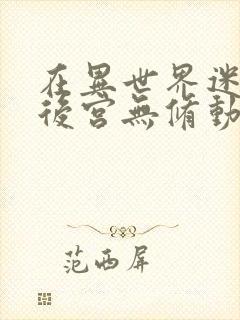 在異世界迷
後宮無脩動
范西屏